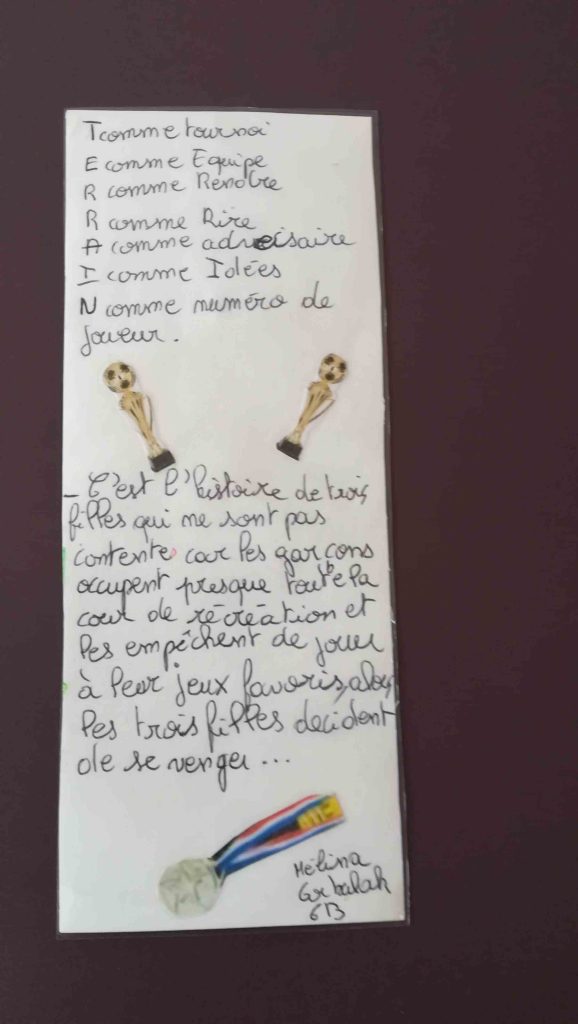 T comme tournoi
E comme Equipe
R comme Renotre
R comme Rire
A comme adveisaire
I comme Idées
N comme numéro de
joueur.
_ C'est l'histoire de trois
filles qui ne sont pas
contente car les garcons
occupent presque toute la
cour de récréation et
les empêchent de jouer
à leur jeux favoris, alors
les trois filles decident
de se venger...
Mélina
6B